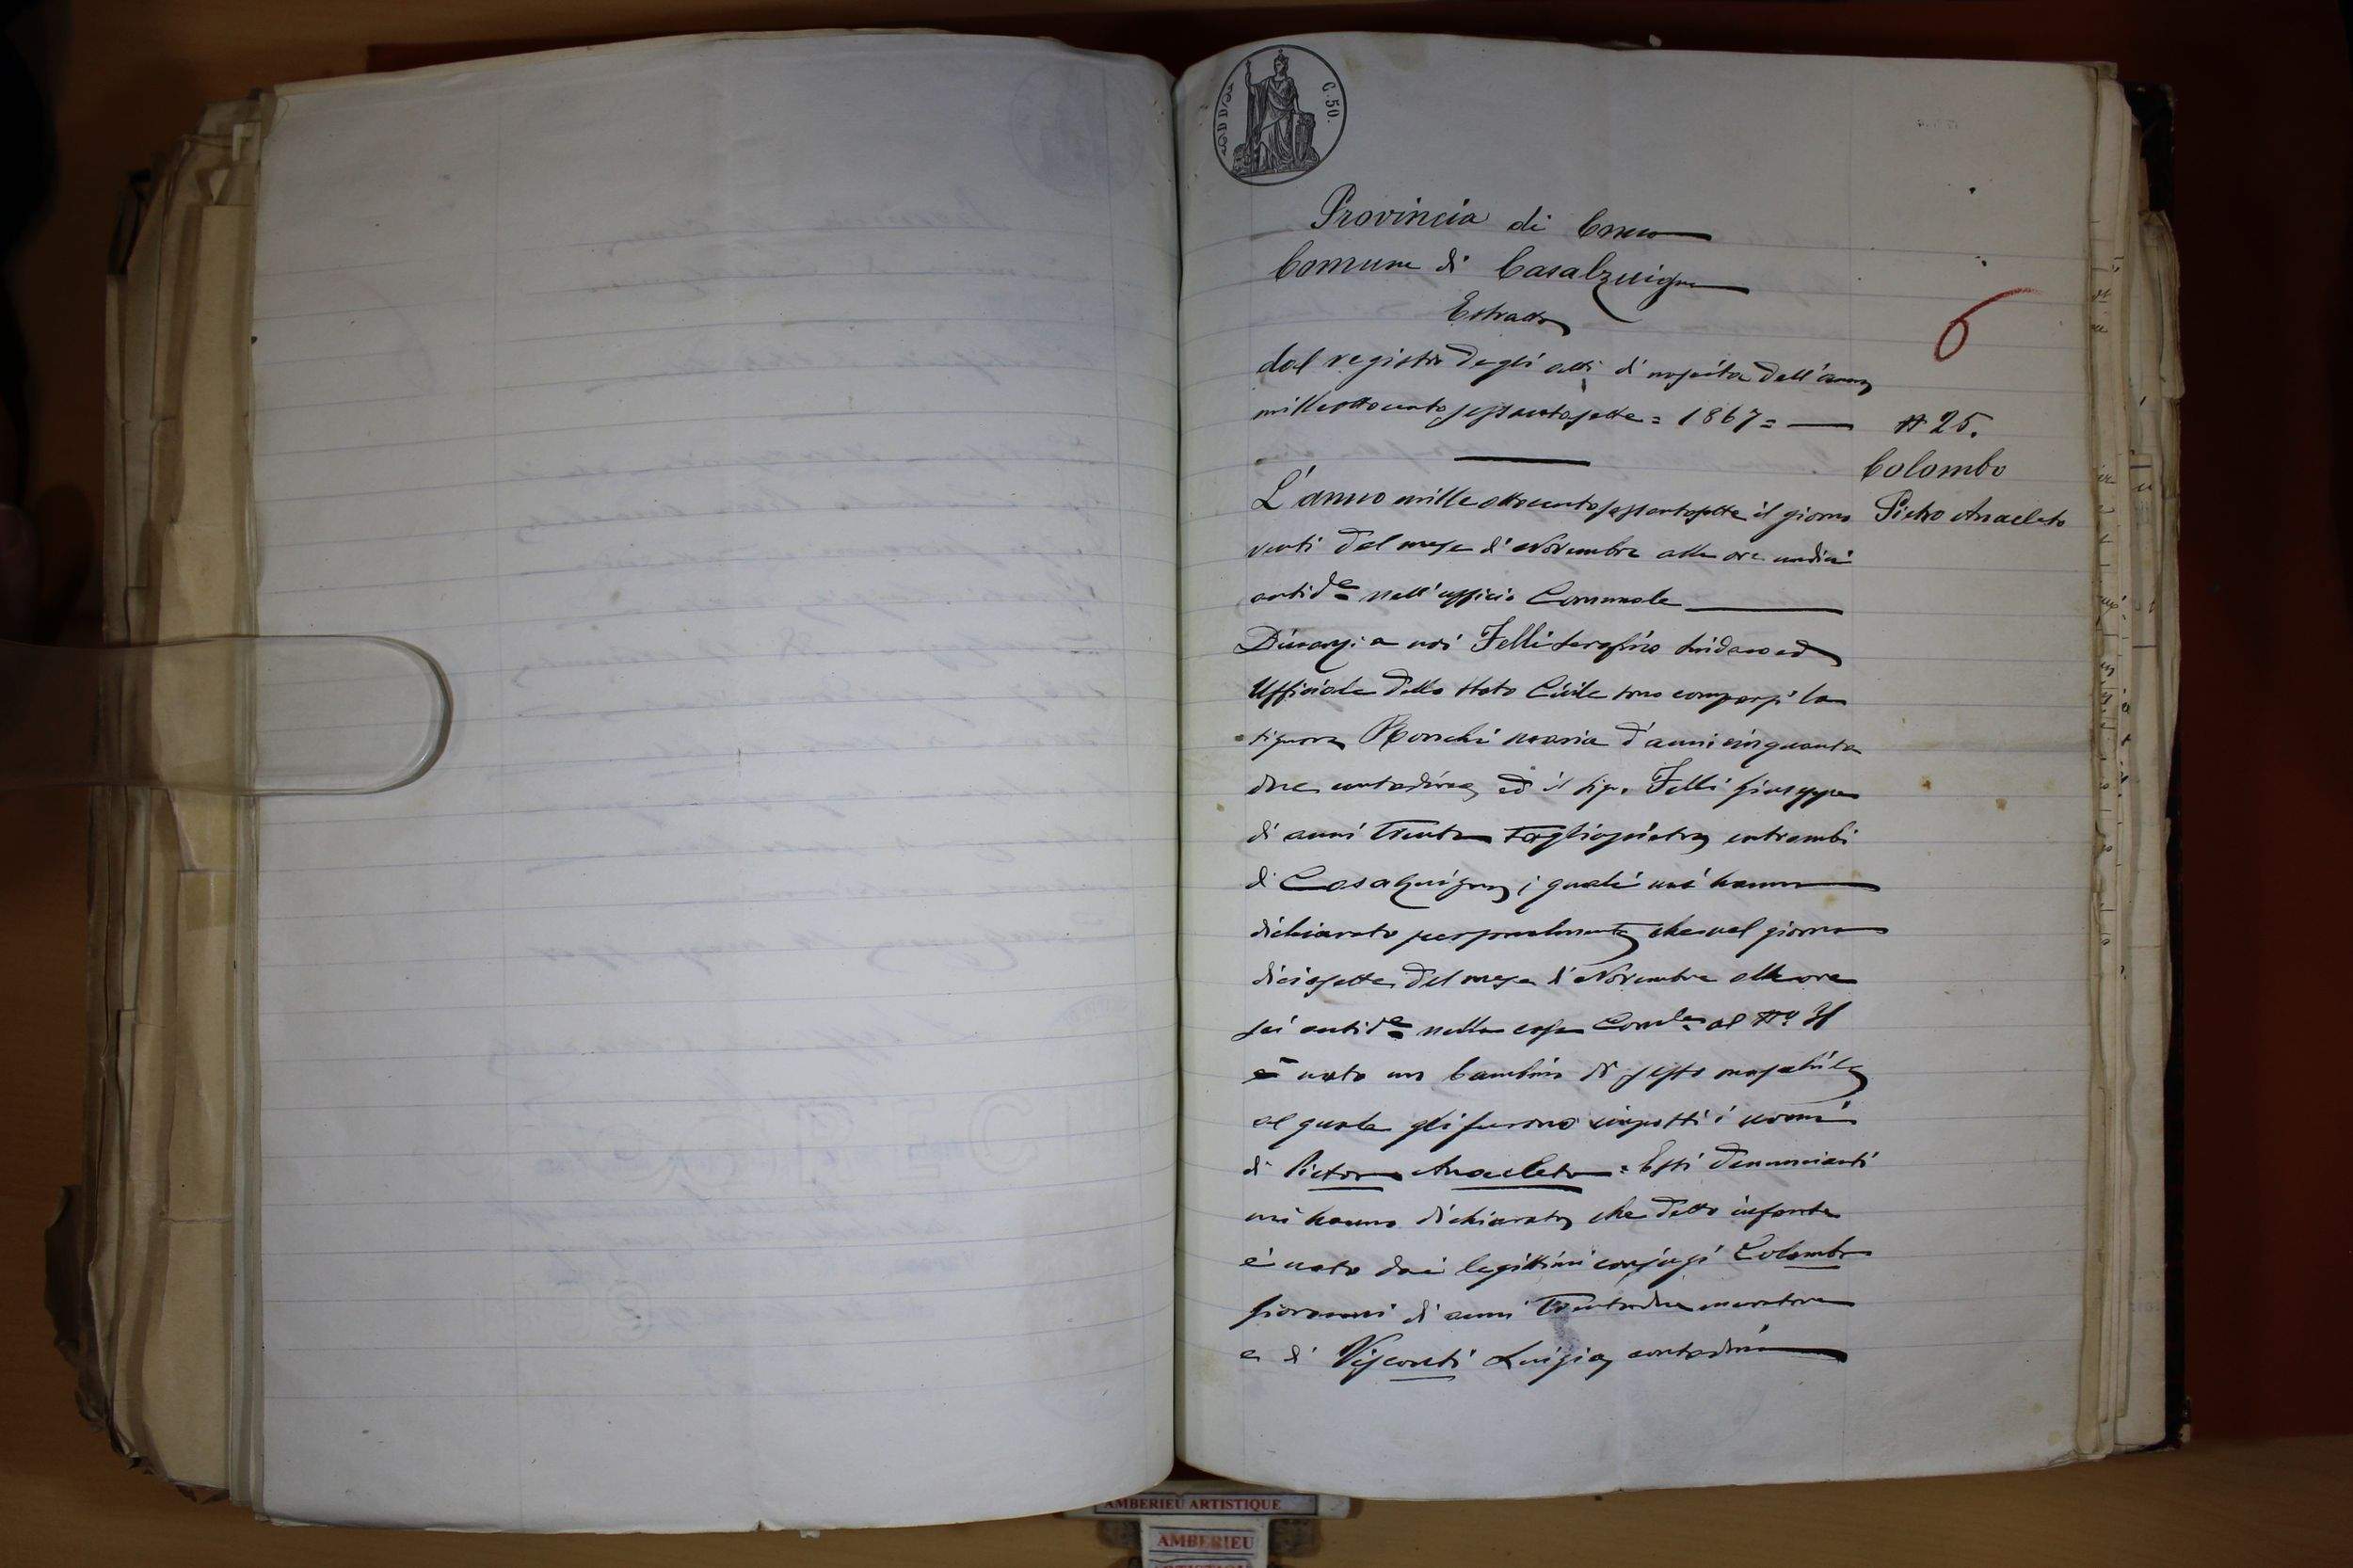 C. 50.
Provincia di Como
Comune di Casalzuigno
Estratto
dal registro degli atti di nascita dell'anno
milleottocentosessantasette = 1867 =
6
N 25.
Colombo
Pietro Anacleto
L'anno milleottocentosessantasette il giorno
venti del mese di Novembre alle ore undici
antid.e nell'ufficio Comunale
Dinanzi a noi Felli Serafino Sindaco ed
Uffiziale dello Stato Civile sono comparsi la
signora Ronchi Maria d'anni cinquanta
due contadina, ed il Sig. Felli Giuseppe
di anni trenta tagliapietra entrambi
di Casalzuigno i quali mi hanno
dichiarato personalmente che nel giorno
diciasette del mese di Novembre alle ore
sei antid.e nella casa al N.o
è nato un bambino di sesso maschile
al quale gli furono imposti i nomi
di Pietro Anacleto = Essi denuncianti
mi hanno dichiarato che detto infante
è nato dai legittimi conjugi Colombo
Giovanni di anni trentadue muratore
e di Visconti Luigia contadini
AMBERIEU ARTISTIQUE
AMBERIEU
ARTISTIQUE